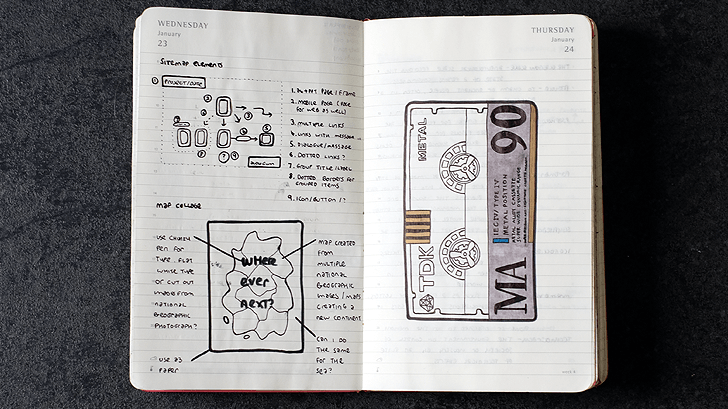 WEDNESDAY
January
23
SITEMAP ELEMENTS
PROJECT/DATE
1. PAGE / FRAME
2. MOBILE PAGE (PAGE
FOR WEB AS WELL)
3. MULTIPLE LINKS
4. LINKS WITH MESSAGE
5. DIALOGUE/MESSAGE
6. DOTTED LINKS?
7. GROUP TITLE/LABEL
8. DOTTED BORDERS FOR
GROUPED ITEMS
9. ICON/BUTTON/?
MAP COLLAGE
USE CHUNKY
PEN FOR
TYPE. FLAT
WHITE TYPE
OR CUT OUT
IMAGES FROM
NATIONAL
GEOGRAPHIC
PHOTOGRAPH?
USE AS
PAPER
WHERE
EVER
NEXT?
MAP CREATED
FROM
MULTIPLE
NATIONAL
GEOGRAPHIC
IMAGES / MAPS
CREATING A
NEW CONTINENT
CAN I DO
THE SAME
FOR THE
SEA?
THURSDAY
January
24
METAL
TDK
MA 90
IECIV/TYPE IV
METAL POSITION